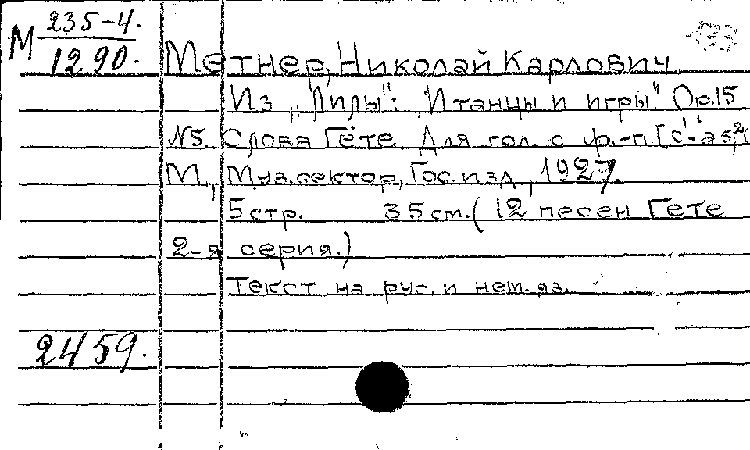 М 235-4.
1290.
Метнер, Николай Карлович
Из "Лилы": "И танцы и игры" Ор.15
№5. Слова Гёте. Для гол. с ф.-п. [c'-as²]
М., Муз.сектор, Гос.изд., 1927.
5 стр. 35 см. (12 песен Гете
2-я серия.)
Текст на рус. и нем. яз.
2459.